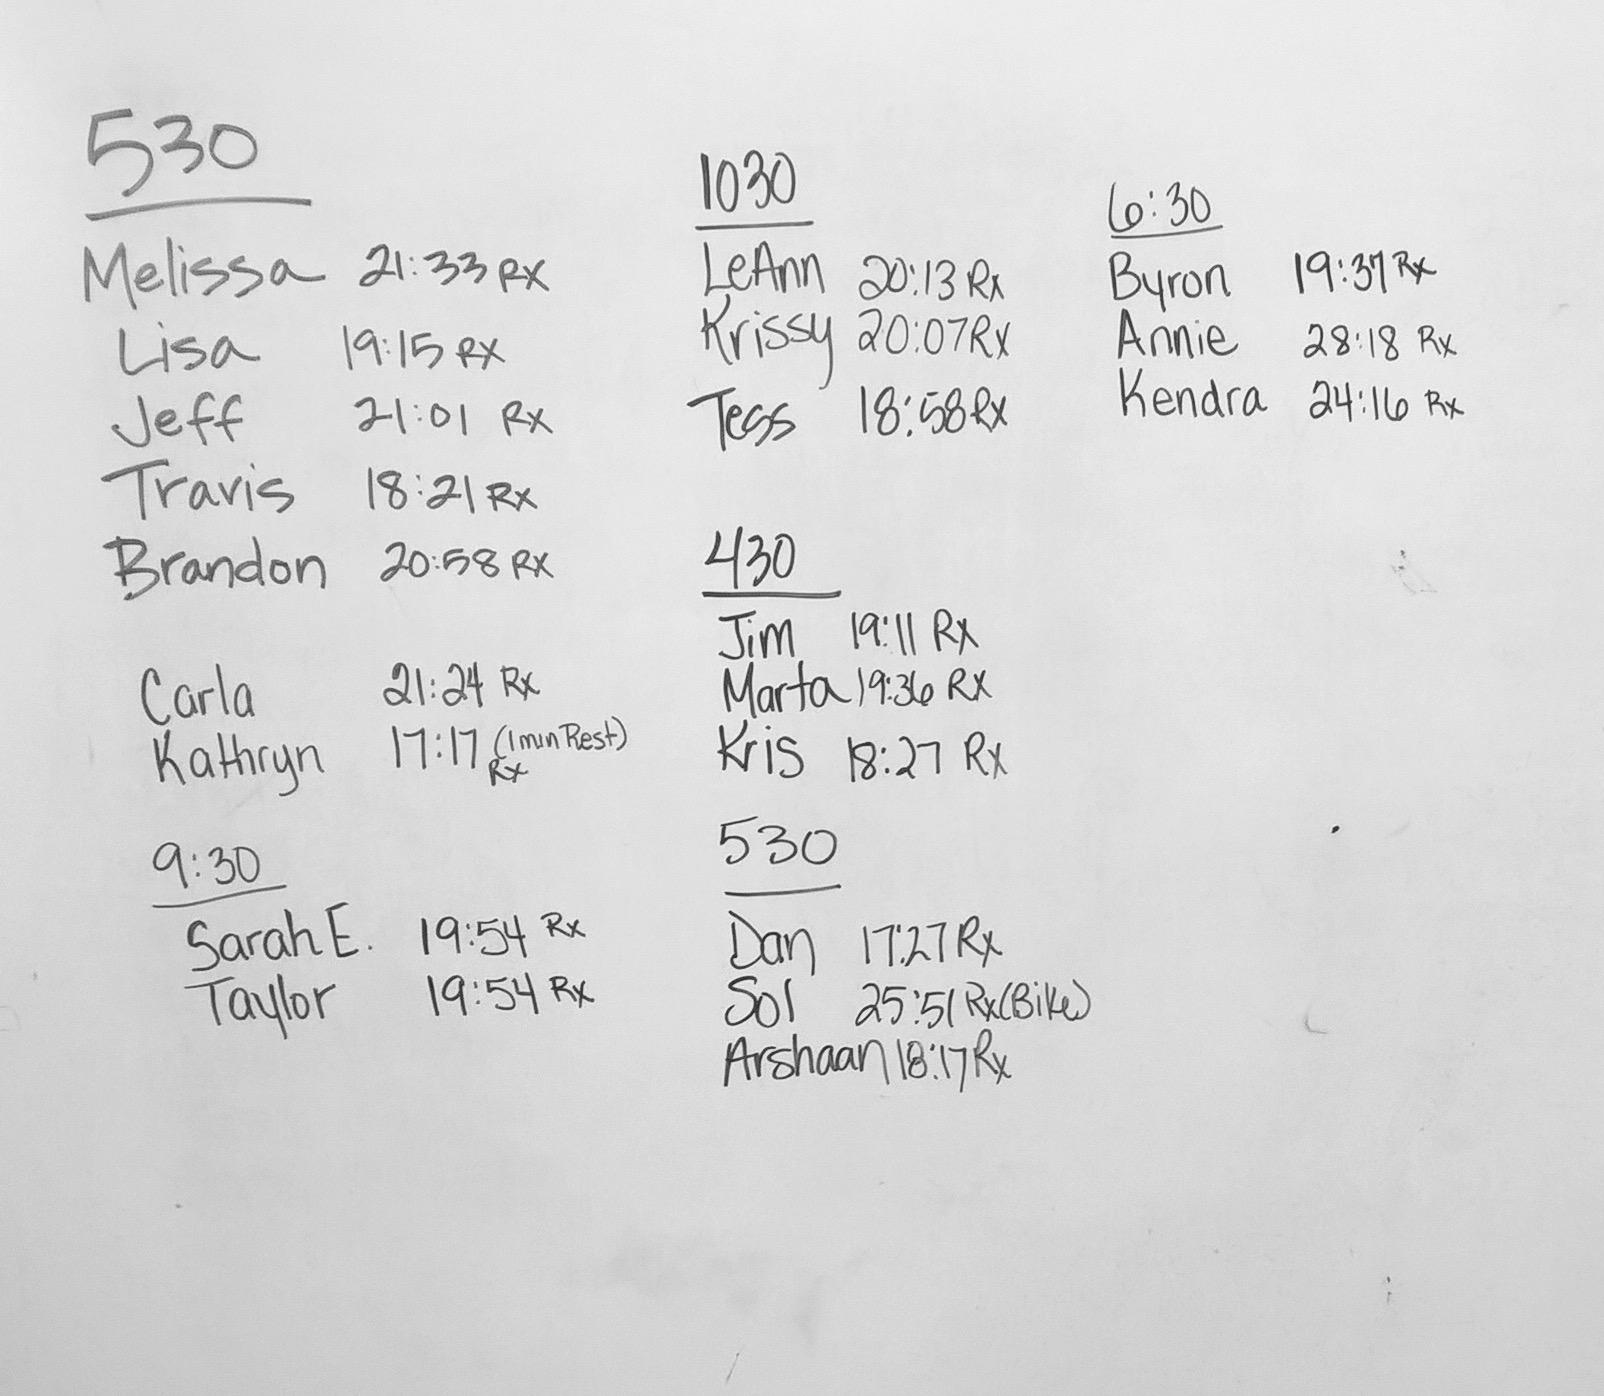 530
Melissa 21:33 Rx
Lisa 19:15 Rx
Jeff 21:01 Rx
Travis 18:21 Rx
Brandon 20:58 Rx
Carla 21:24 Rx
Kathryn 17:17 (1 min Rest)
Rx
9:30
Sarah E. 19:54 Rx
Taylor 19:54 Rx
1030
LeAnn 20:13 Rx
Krissy 20:07 Rx
Tess 18:58 Rx
430
Jim 19:11 Rx
Marta 19:36 Rx
Kris 18:27 Rx
530
Dan 17:27 Rx
Sol 25:51 Rx (Bike)
Arshaan 18:17 Rx
6:30
Byron 19:37 Rx
Annie 28:18 Rx
Kendra 24:16 Rx